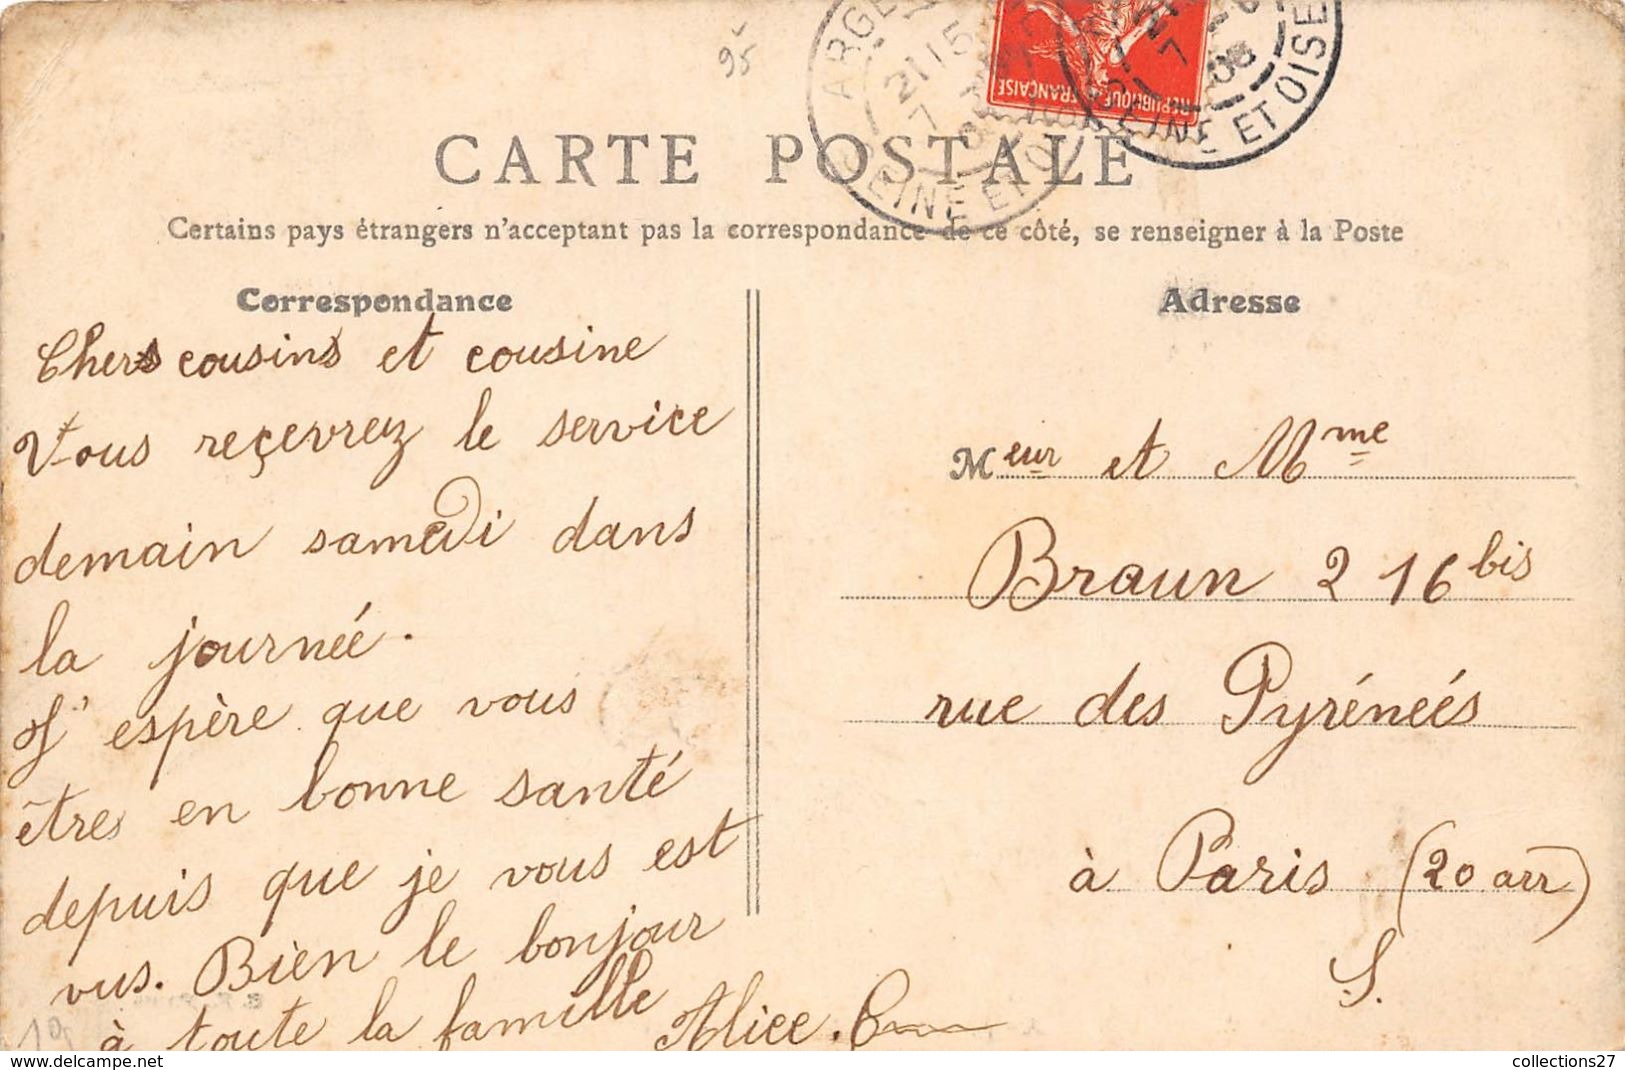 95
ARGE
21 15
7
SEINE ET O
REPUBLIQUE FRANÇAISE
7
08
SEINE ET OISE
CARTE POSTALE
Certains pays étrangers n'acceptant pas la correspondance de ce côté, se renseigner à la Poste
Correspondance
Chers cousins et cousine
Vous reçevrez le service
demain samedi dans
la journée.
J'espère que vous
êtres en bonne santé
depuis que je vous est
vus. Bien le bonjour
à toute la famille
Alice. C
Adresse
Meur et Mme
Braun 216 bis
rue des Pyréneés
à Paris (20 arr)
S.
19
collections27